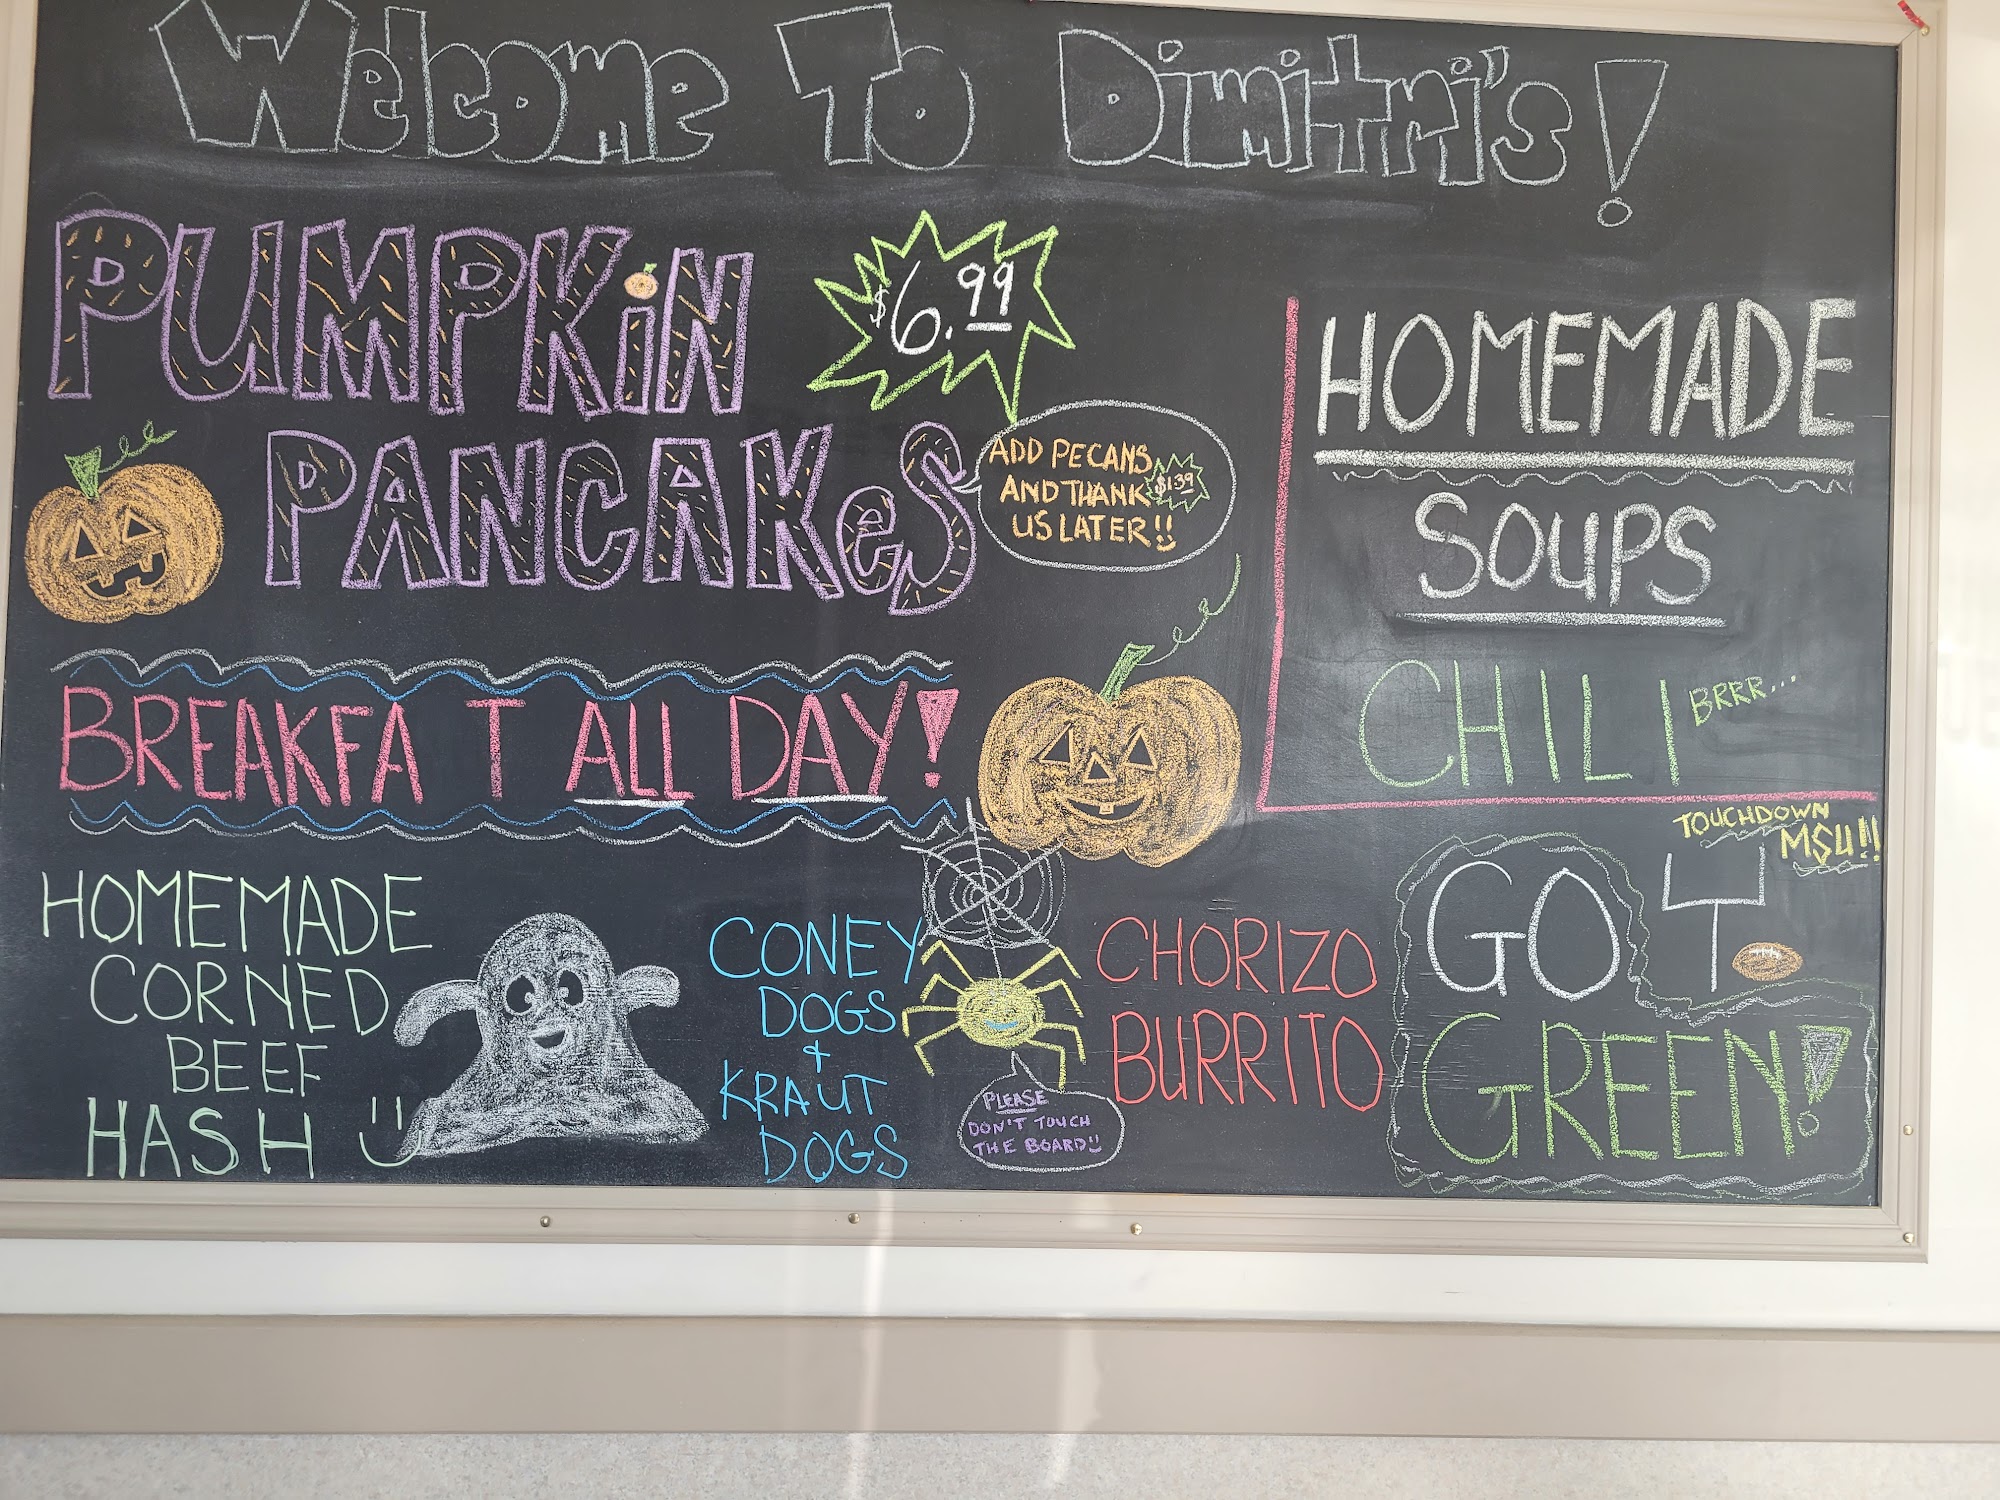 Welcome To Dimitri's!
PUMPKiN
$6.99
PANCAKeS
ADD PECANS
AND THANK $1.39
US LATER!!
HOMEMADE
SOUPS
CHILI BRRR...
BREAKFA T ALL DAY!
HOMEMADE
CORNED
BEEF
HASH
CONEY
DOGS
+
KRAUT
DOGS
PLEASE
DON'T TOUCH
THE BOARD!!
CHORIZO
BURRITO
TOUCHDOWN
MSU!!
GO
GREEN!